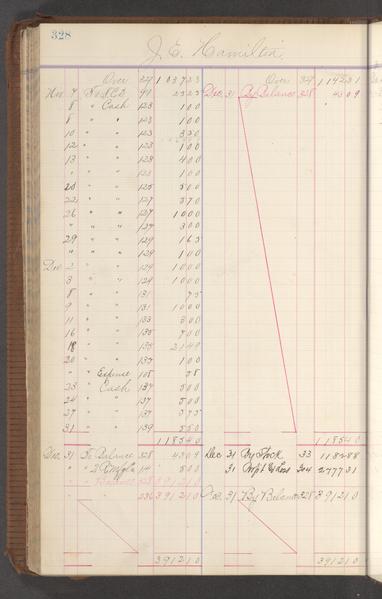 328
J. E. Hamilton.
Over 327 103723 Over 327 114231
Nov. 7 2325 Dec. 31 By Balance 328 4309
8 " Cash 123 100
8 " " 123 100
10 " " 123 350
12 " " 123 100
13 " " 123 400
" " " 123 100
20 " " 125 500
22 " " 127 370
26 " " 127 1000
" " " 127 300
29 " " 129 165
" " " 129 100
Dec. 2 " " 129 1000
3 " " 129 1000
8 " " 131 75
9 " " 131 1000
11 " " 133 300
16 " " 135 700
18 " " 135 2149
20 " " 137 100
" " Expense 108 58
23 " Cash 137 500
24 " " 137 500
27 " " 137 375
31 " " 139 550
118540 118540
Dec. 31 To Balance 328 4309 Dec 31 By Stock 33 11 " " 14 500 31 Loss 304 27773 1
" " Balance 328 391210
391210 Dec. 31 By Balance 328 391210
391210